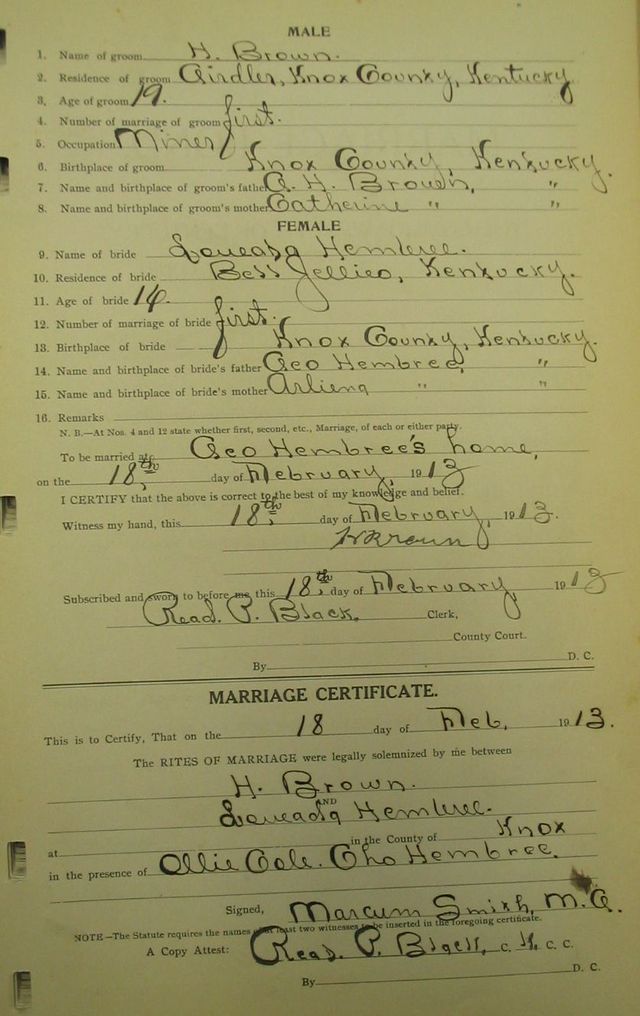 MALE
1. Name of groom H. Brown.
2. Residence of groom Girdler, Knox County, Kentucky
3. Age of groom 19.
4. Number of marriage of groom first.
5. Occupation Miner
6. Birthplace of groom Knox County, Kentucky.
7. Name and birthplace of groom's father A. H. Brown, "
8. Name and birthplace of groom's mother Catherine " "
FEMALE
9. Name of bride Hembree.
10. Residence of bride Best Jellico, Kentucky.
11. Age of bride
12. Number of marriage of bride first.
13. Birthplace of bride Knox County, Kentucky.
14. Name and birthplace of bride's father Geo Hembree, "
15. Name and birthplace of bride's mother Arliena " "
16. Remarks
N. B.—At Nos. 4 and 12 state whether first, second, etc., Marriage, of each or either party.
To be married at Geo Hembree's home,
on the 18th day of February, 1913
I CERTIFY that the above is correct to the best of my knowledge and belief.
Witness my hand, this 18th day of February, 1913.
H Brown
Subscribed and sworn to before me this 18th day of February, 1913
Read. P. Black. Clerk,
County Court.
By D. C.
MARRIAGE CERTIFICATE.
This is to Certify, That on the 18 day of Feb, 1913.
The RITES OF MARRIAGE were legally solemnized by me between
H. Brown.
AND
Hembree.
at in the County of Knox
in the presence of Ollie Cole. Hembree.
Signed, Marcum Smith, M. G.
NOTE—The Statute requires the names of at least two witnesses to be inserted in the foregoing certificate.
A Copy Attest: Read. P. Black, C. K. C. C.
By D. C.